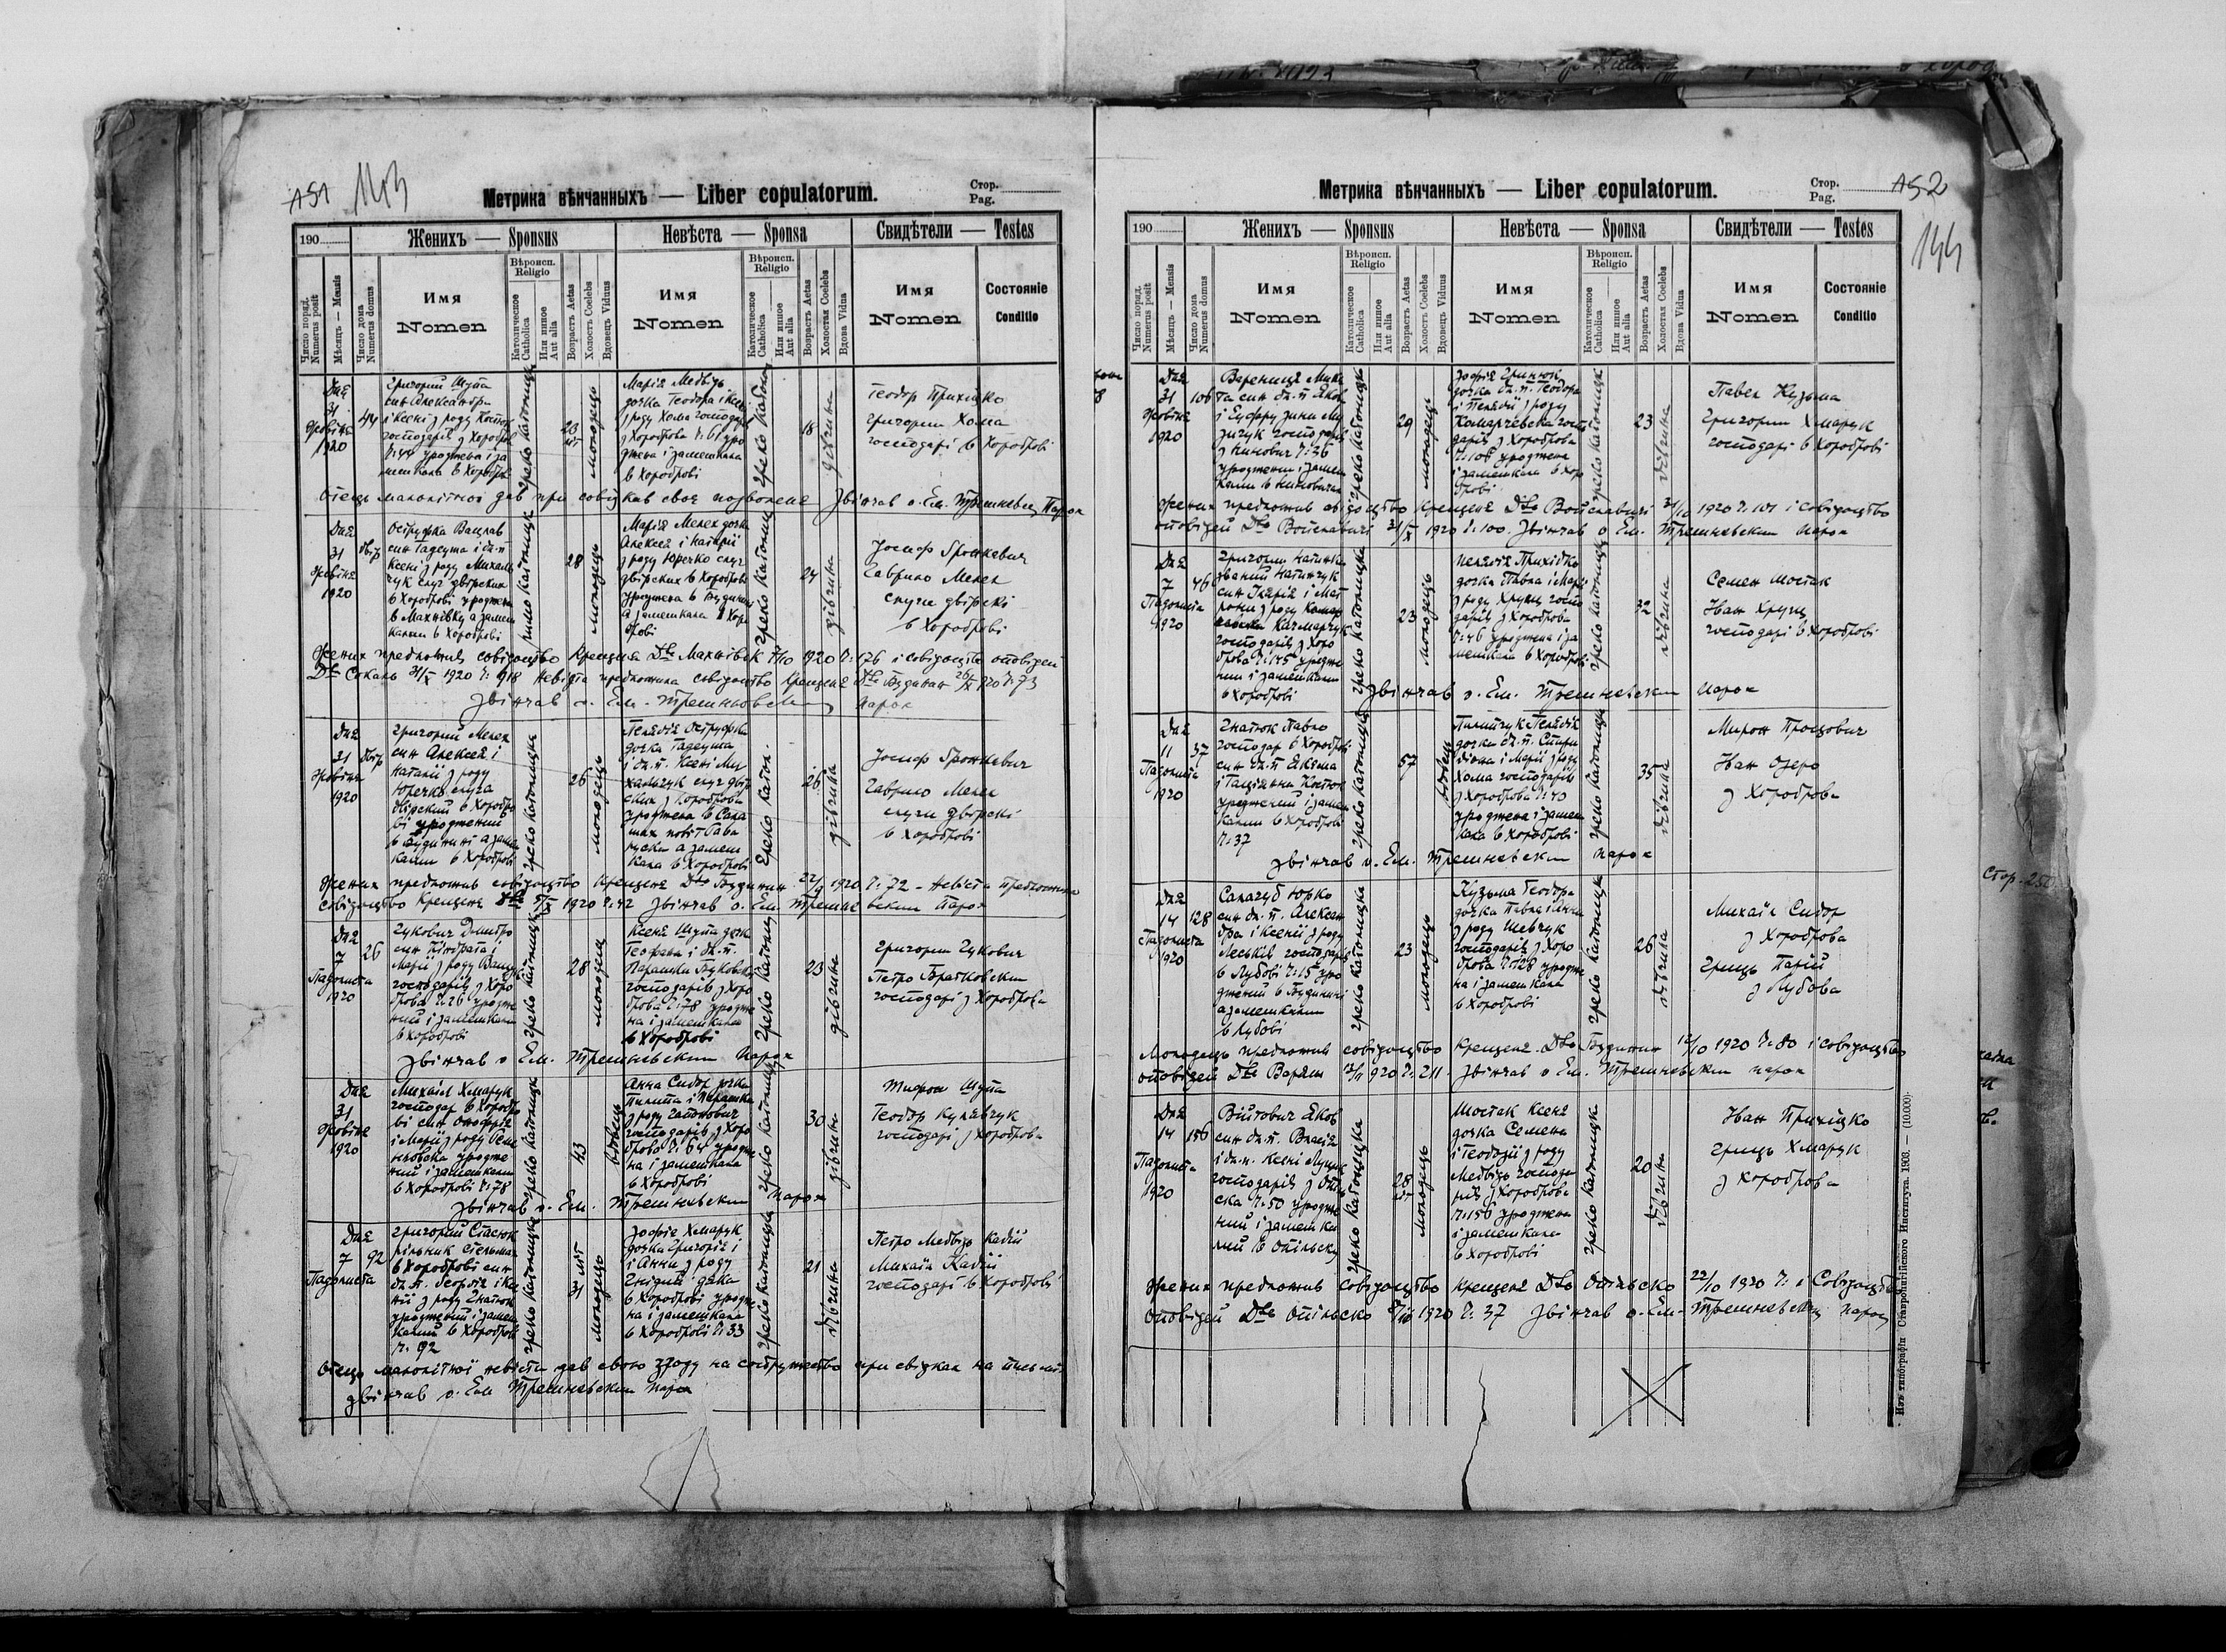 151
143
Метрика вѣнчанныхъ — Liber copulatorum.
Стор.
Pag.
190
Женихъ — Sponsus
Невѣста — Sponsa
Свидѣтели — Testes
Число поряд.
Numerus posit
Мѣсяць — Mensis
Число дома
Numerus domus
Имя
Nomen
Вѣроисп.
Religio
Католическое
Catholica
Или инное
Aut alia
Возрастъ Aetas
Холостъ Coelebs
Вдовецъ Viduus
Имя
Nomen
Вѣроисп.
Religio
Католическое
Catholica
Или инное
Aut alia
Возрастъ Aetas
Холостая Coelebs
Вдова Vidua
Имя
Nomen
Состояніе
Conditio
Дня
31
Жовтня
1920
44
Григорий Шупа
син Александра
і Ксені з роду
господарів з Хоробрів
ч. 44 уроджена і за
мешкала в Хороброві
греко католицке
23
літ
молодець
Марія Медвідь
дочка Теодора і Ксені
з роду Хома господарів
з Хороброва ч. 61 уро
джена і замешкала
в Хороброві
греко католицка
18
дівчина
Теодор Приходко
Григорий Хома
господарі в Хороброві
Отець малолітної дав при свідках своє позволенє Звінчав о. Ем. Трешневский Парох
Дня
31
Жовтня
1920
двір
Оструфка Вацлав
син Тадеуша і бл. п
Ксені з роду Михаль
чук слуг двірских
в Хороброві уроджени
в Махнівку а замеш
калий в Хороброві
римо католицке
28
молодець
Марія Мелех дочка
Алексея і Наталії
з роду Юречко слуг
двірских в Хороброві
уроджена в Будинині
а замешкала в Хоро
брові
греко католицка
24
дівчина
Йосиф Гронкевич
Гаврило Мелех
слуги двірскі
в Хороброві
Жених предложив совідоцтво крещеня Dto Махнівек 7/10 1920 ч. 176 і совідоцтво оповідей
Dto Сокаль 31/X 1920 ч. 918 Невіста предложила совідоцтво крещенє Dto Будинин 26/X 920 ч. 73
Звінчав о. Ем. Трешньовский Парох
Дня
31
Жовтня
1920
двір
Григорий Мелех
син Алексея і
Наталії з роду
Юречко слуга
двірский в Хоробро
ві уроджений
в Будинині а замеш
калий в Хороброві
греко католицке
26
молодець
Пелягія Оструфка
дочка Тадеуша
і бл. п. Ксені Ми
хальчук слуг двір
ских з Хороброва
уроджена в
повіт Рава
руска а замеш
кала в Хороброві
греко катол.
26
дівчина
Йосиф Гронкевич
Гаврило Мелех
слуги двірскі
в Хороброві
Жених предложив совідоцтво крещенє Dto Будинин 22/9 1920 ч. 72 - Невіста предложила
совідоцтво крещенє 1920 ч. 42 Звінчав о. Ем. Трешневский Парох
Дня
7
Падолиста
1920
26
Дмитро
син
Марії з роду
господарів з Хоро
брова ч. 26 уродже
ний і замешкалий
в Хороброві
греко католицке
28
молодець
Ксеня Шупа дочка
Теофана і бл. п.
Парашки Буковска
господарів з Хоро
брова ч. 78 уродже
на і замешкала
в Хороброві
греко католицка
23
дівчина
Григорий
Петро Братковский
господарі з Хороброва
Звінчав о Ем. Трешневский Парох
Дня
31
Жовтня
1920
Михаіл Хмарук
господар в Хоробро
ві син Онофрія
і Марії з роду
уродже
ний і замешкали
в Хороброві ч. 78
греко католицке
43
вдовець
Анна Сидор дочка
Пилипа і Парашки
з роду Гапонович
господарів з Хоро
брова ч. 64 уродже
на і замешкала
в Хороброві
греко католицка
30
дівчина
Мирон Шупа
Теодор Кулявчук
господарі з Хороброва
Звінчав о. Ем. Трешневский Парох
Дня
7
Падолиста
92
Григорий Стасюк
рільник
в Хороброві син
бл. п. Георгія і Ка
з роду Гнатюк
уроджений і замеш
калий в Хороброві
ч. 92
греко католицке
літ
31
молодець
Зофія Хмарук
дочка Григорія і
і Анни з роду
Гнідий дяка
в Хороброві уродже
на і замешкала
в Хороброві ч. 33
греко католицка
21
дівчина
Петро Медвідь Кадій
Михаіл Кадій
господарі в Хороброві
Отець малолітної невісти дав свою згоду на супружество при свідках на письмі
Звінчав о. Ем Трешневский Парох
152
144
Метрика вѣнчанныхъ — Liber copulatorum.
Стор.
Pag.
190
Женихъ — Sponsus
Невѣста — Sponsa
Свидѣтели — Testes
Число поряд.
Numerus posit
Мѣсяць — Mensis
Число дома
Numerus domus
Имя
Nomen
Вѣроисп.
Religio
Католическое
Catholica
Или инное
Aut alia
Возрастъ Aetas
Холостъ Coelebs
Вдовецъ Viduus
Имя
Nomen
Вѣроисп.
Religio
Католическое
Catholica
Или инное
Aut alia
Возрастъ Aetas
Холостая Coelebs
Вдова Vidua
Имя
Nomen
Состояніе
Conditio
Дня
31
Жовтня
1920
106
Вареница Мики
та син бл. п Яков
і Еуфрузини Му
зичук господарів
з ч. 36
уроджени і замеш
калий в
греко католицке
29
молодець
Зофія Гринюк
дочка бл. п. Теодора
і Пелягії з роду
Комарчевска госпо
дарів з Хороброва
ч. 106 уроджена
і замешкала в Хоро
брові
греко католицка
23
дівчина
Павел Кузьма
Григорий Хмарук
господарі в Хороброві
Жених предложив свідоцтво крещенє Dto Войславичі 31/10 1920 ч. 101 і совідоцтво
оповідей Dto Войславичі 31/X 1920 ч. 100. Звінчав о. Ем. Трешневский Парох
Дня
7
Падолиста
1920
46
Григорий
званий
син Ілярія і Мат
рони з роду
Качмарчук
господарів з Хоро
брова ч. 145 уродже
ний і замешкалий
в Хороброві
греко католицке
23
молодець
Пелягія Приходко
дочка Павла і Марії
з роду Хрущ госпо
дарів з Хороброва
ч. 46 уроджена і за
мешкала в Хороброві
греко католицка
32
дівчина
Семен Мостак
Іван Хрущ
господарі в Хороброві
Звінчав о. Ем. Трешневский Парох
Дня
11
Падолиста
1920
37
Гнатюк Павло
господар в Хороброві
син бл. п. Якима
і Тацианни Костюк
уроджений і замеш
калий в Хороброві
ч. 37
греко католицке
57
вдовець
Пилипчук Пелягія
дочка бл. п. Спири
діона і Марії з роду
Хома господарів
з Хороброва ч. 40
уроджена і замеш
кала в Хороброві
греко католицка
35
дівчина
Мирон Процович
Іван Озеро
з Хороброва
Звінчав о. Ем. Трешневский Парох
Дня
14
Падолиста
1920
128
Салагуб Юрко
син бл. п. Алексан
дра і Ксенії з роду
Леськів господарів
в Лубові ч. 15 уро
джений в Будинині
а замешкалий
в Лубові
греко католицке
23
молодець
Кузьма Теодора
дочка Павла і Анни
з роду Шевчук
господарів з Хоро
брова ч. 128 уродже
на і замешкала
в Хороброві
греко католицка
26
дівчина
Михаіл Сидор
з Хороброва
Грицъ Палій
з Лубова
Молодець предложив совідоцтво крещенє Dto Будинин 12/10 1920 ч. 80 і совідоцтво
оповідей Dto Варяж 13/11 920 ч. 211. Звінчав о Ем. Трешневский парох
Дня
14
Падолиста
1920
156
Війтович Яков
син бл. п. Власія
і бл. п. Ксені Луцик
господарів з Опіль
ска ч. 50 уродже
ний і замешка
лий в Опільску
греко католицка
28
літ
молодець
Мостак Ксеня
дочка Семена
і Теодозії з роду
Медвідь господа
рів з Хороброва
ч. 156 уроджена
і замешкала
в Хороброві
греко католицке
20
дівчина
Іван Приходко
Грицъ Хмарук
з Хороброва
Жених предложив совідоцтво крещенє Dto Опільско 22/10 1920 ч. і Совідоцтво
Оповідей Dto Опільско 1920 ч. 37 Звінчав о. Ем. Трешневский парох
Изъ типографіи Ставропигійского Института. 1903. — (10.000).
Стор. 250